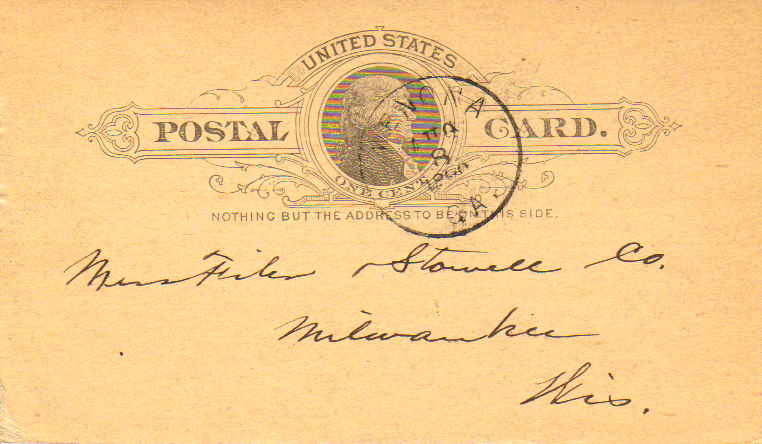 UNITED STATES
POSTAL CARD.
ONE CENT
NOTHING BUT THE ADDRESS TO BE ON THIS SIDE.
ENONA
8
GA.
Mess Filer & Stowell Co.
Milwaukee
Wis.